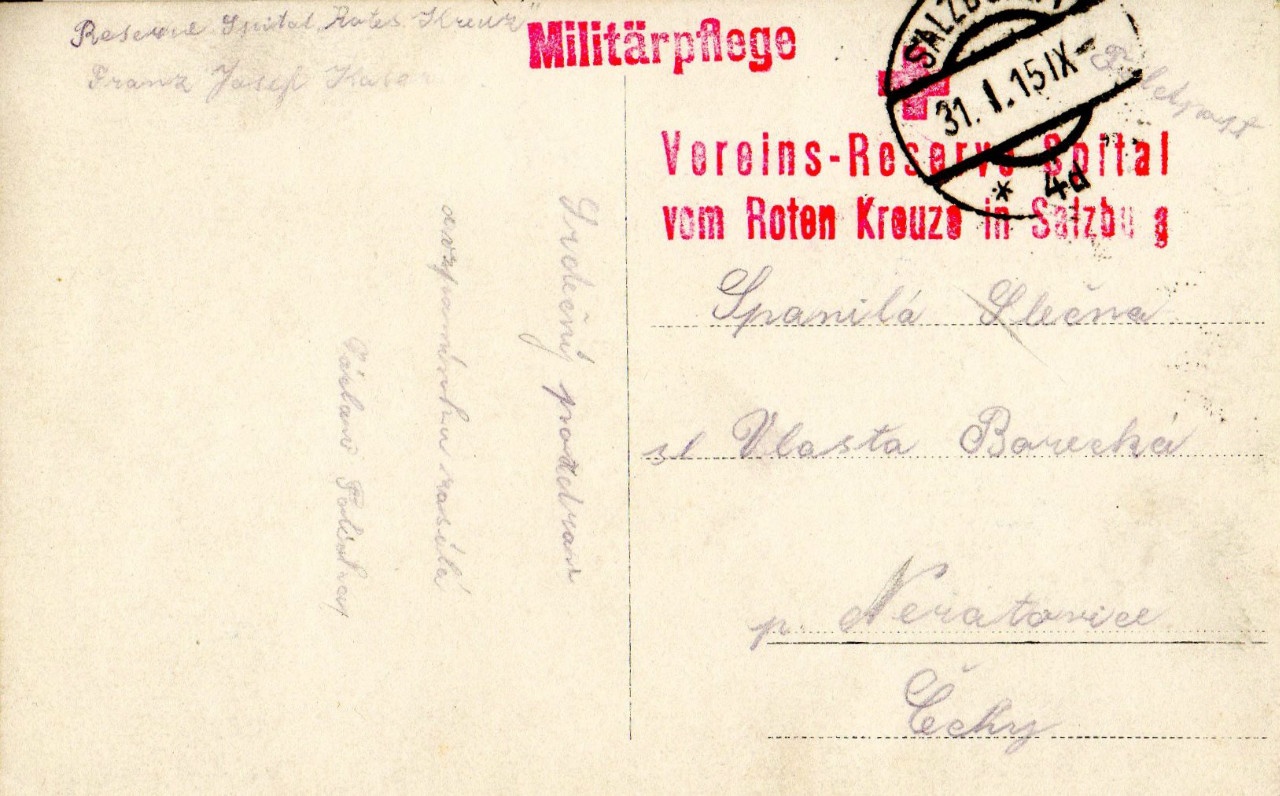 Reserve Spital "Rotes Kreuz"
Franz Josefs Kaser
Militärpflege
SALZBURG
31. I. 15 IX-
* 4d
Vereins-Reserve-Spital
vom Roten Kreuze in Salzburg
Srdečný pozdrav
a vzpomínku zasílá
Spanilá Slečna
sl Vlasta Borecká
p. Neratovice
Čechy